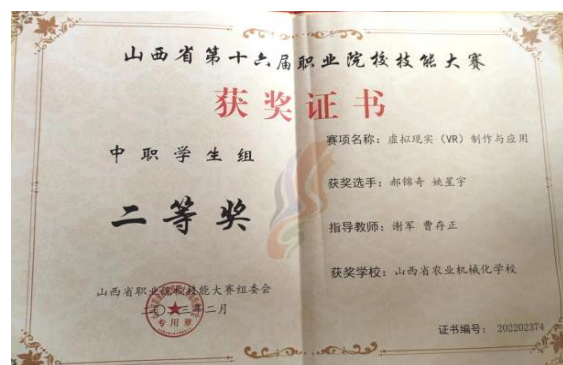 山西省第十六届职业院校技能大赛
获奖证书
中职学生组
二等奖
山西省职业院校技能大赛组委会
二〇二三年二月
专用章
赛项名称：虚拟现实（VR）制作与应用
获奖选手：郝锦奇 姚星宇
指导教师：谢军 曹存正
获奖学校：山西省农业机械化学校
证书编号： 202202374